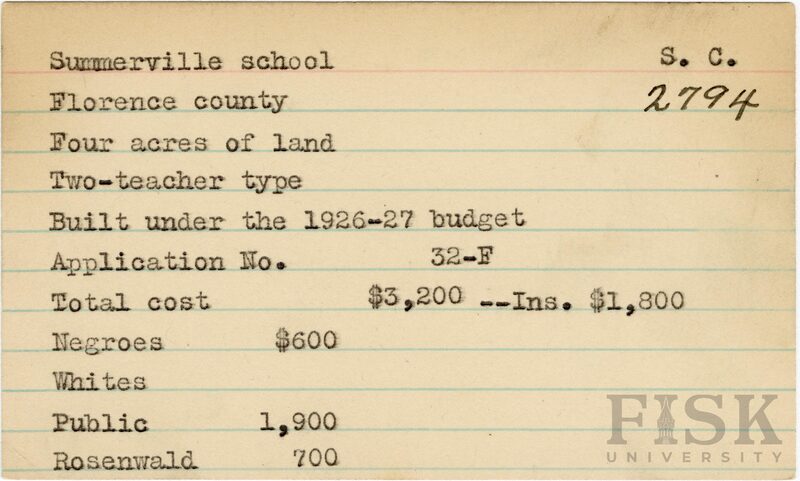 Summerville school S. C.
Florence county 2794
Four acres of land
Two-teacher type
Built under the 1926-27 budget
Application No. 32-F
Total cost $3,200 --Ins. $1,800
Negroes $600
Whites
Public 1,900
Rosenwald 700
FISK
UNIVERSITY